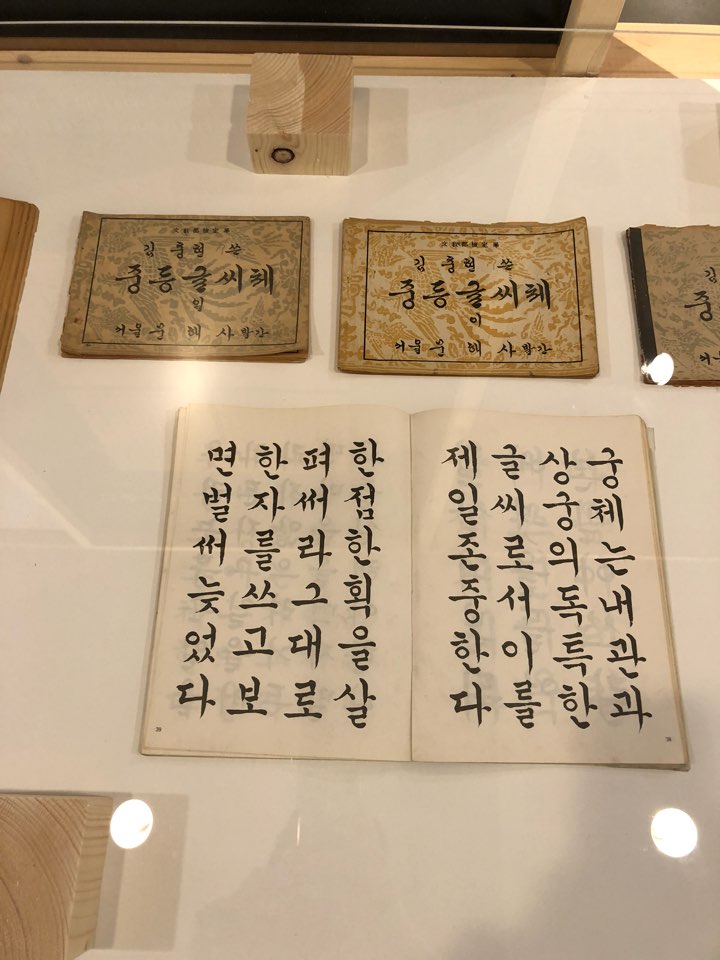 文敎部檢定畢
김충현 쓴
중등글씨체
일
서울 문 해 사
文敎部檢定畢
김충현 쓴
중등글씨체
이
서울 문 해 사
김
중
궁체는내관과
상궁의독특한
글씨로서이를
제일존중한다
38
한점한획을살
펴써라그대로
한자를쓰고보
면벌써늦었다
39